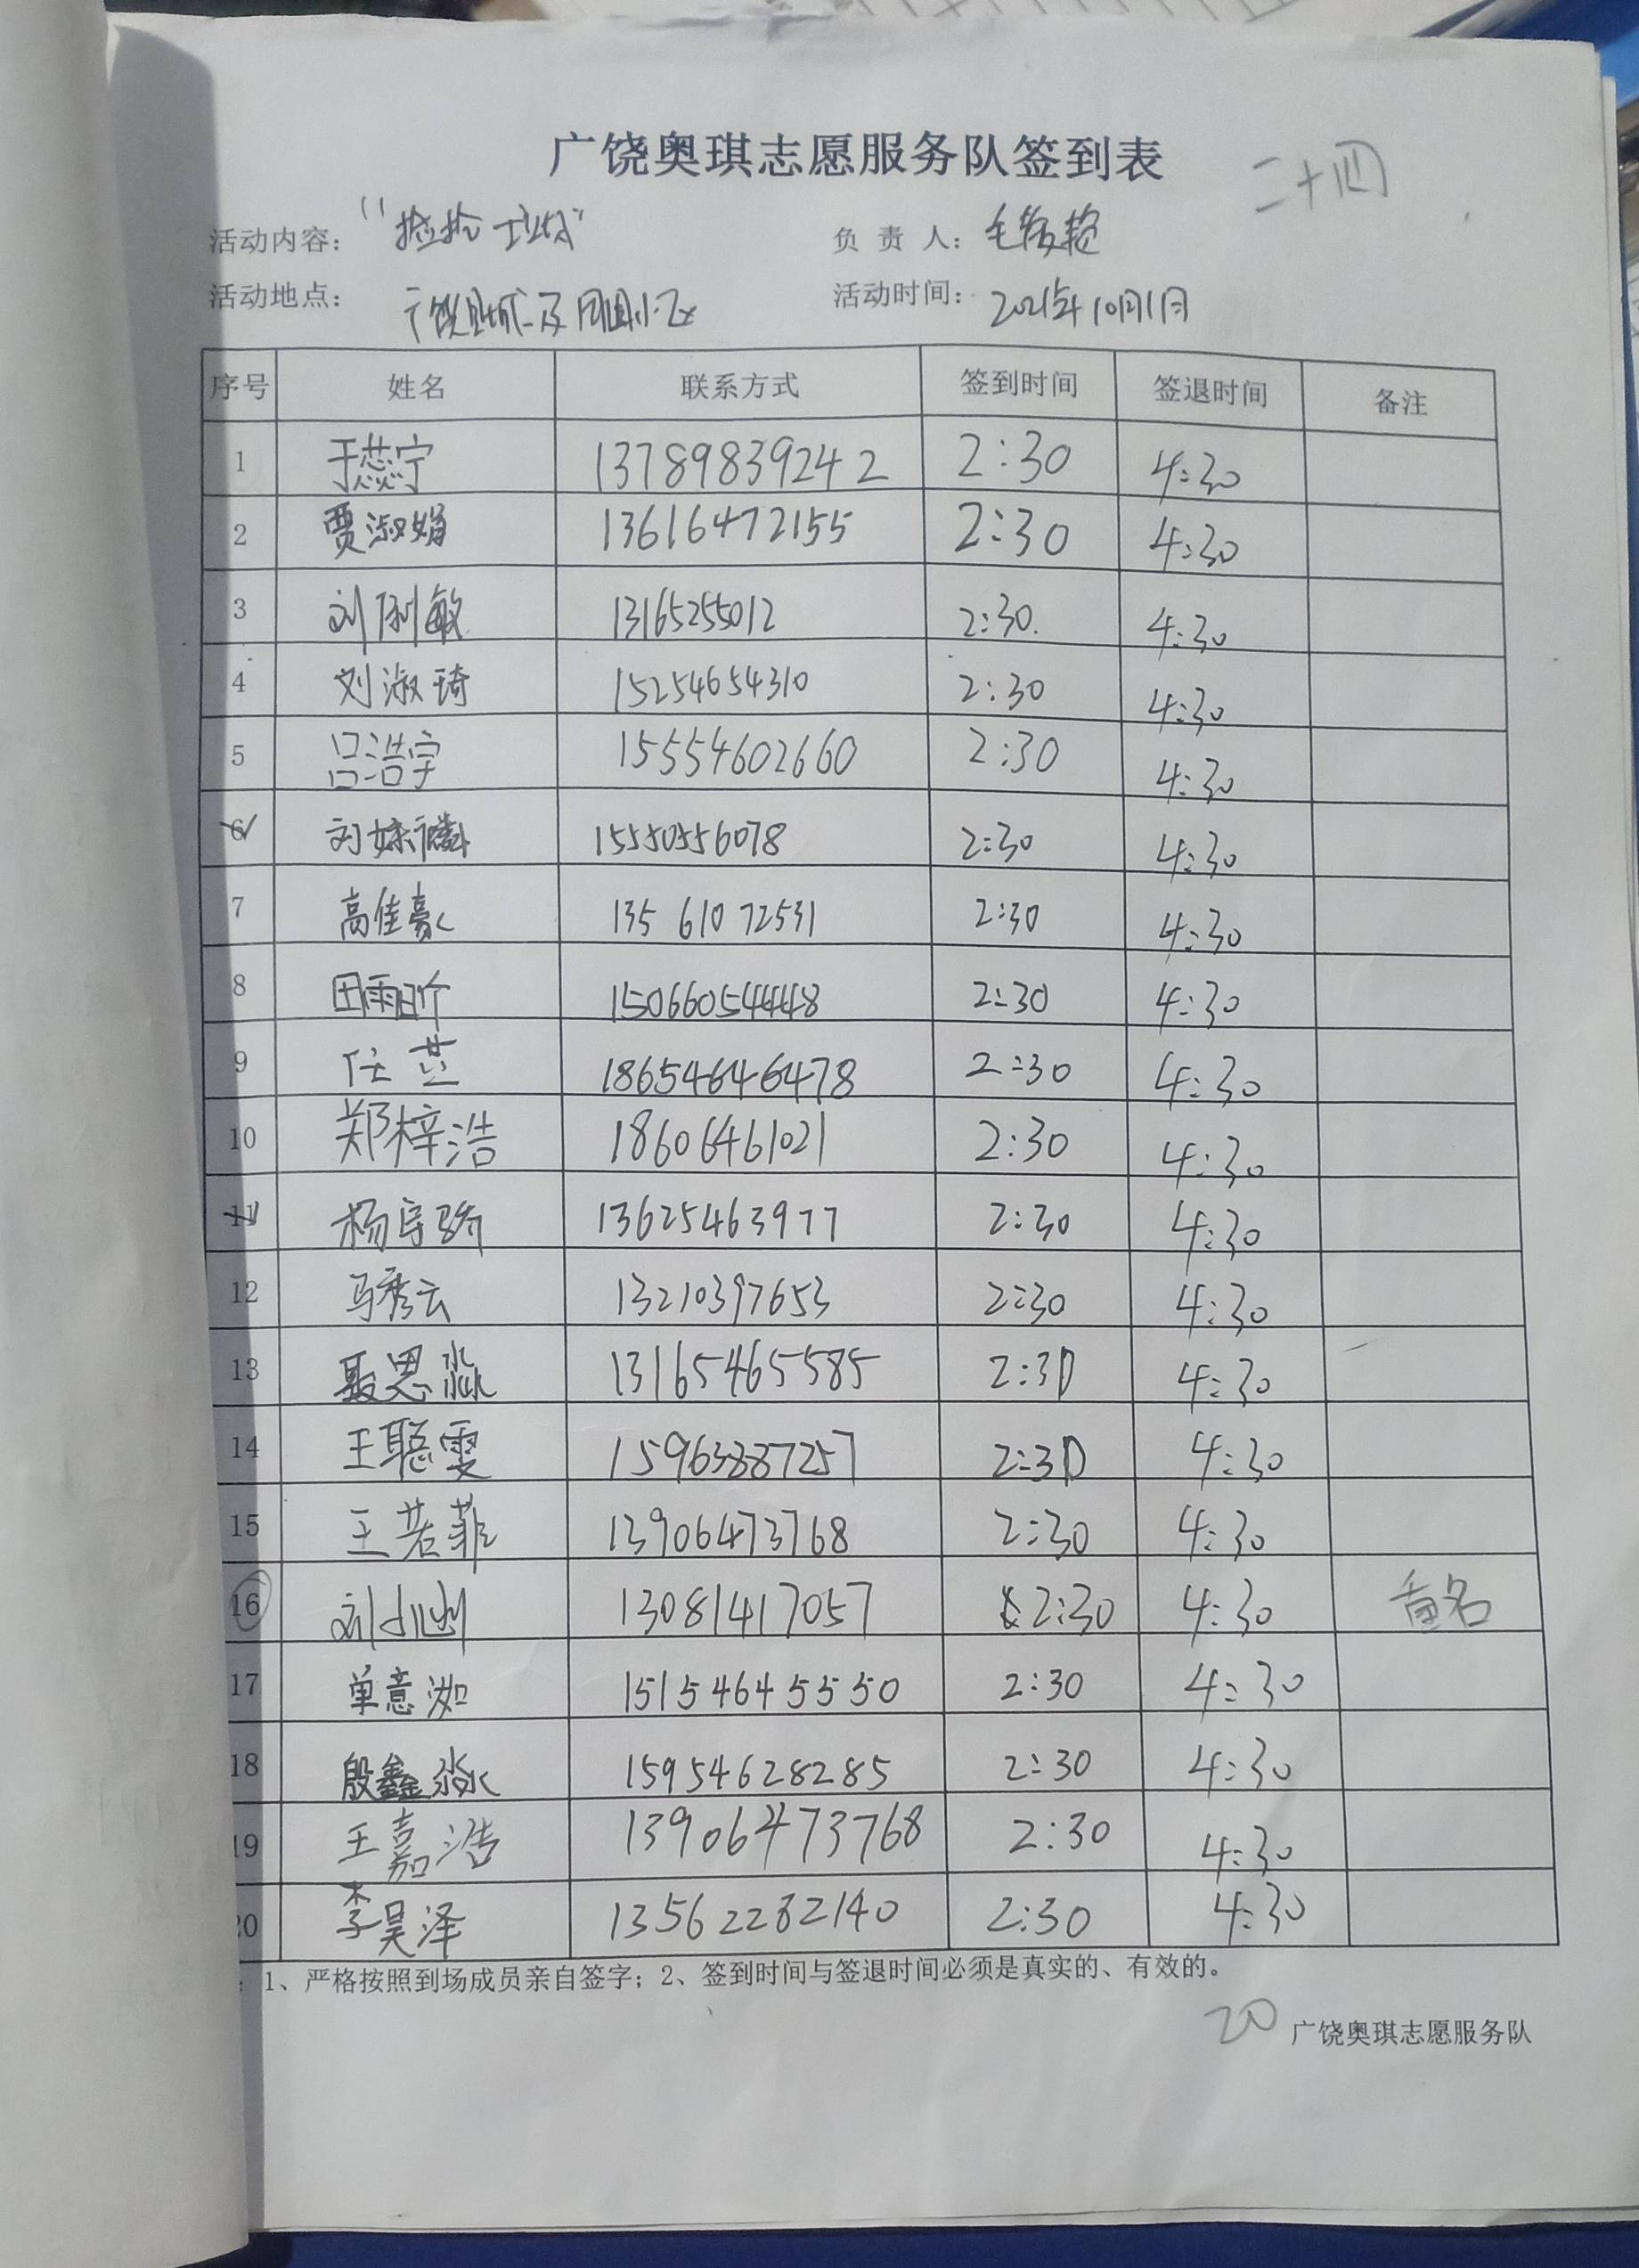 广饶奥琪志愿服务队签到表
二十四
活动内容： “捡拾垃圾” 负 责 人：
活动地点： 活动时间： 2021年10月1日
序号 姓名 联系方式 签到时间 签退时间 备注
1 于蕊宁 13789839242 2:30 4:30
2 贾淑娟 13616472155 2:30 4:30
3 刘俐敏 13165255012 2:30. 4:30
4 刘淑琦 15254654310 2:30 4:30
5 吕浩宇 15554602660 2:30 4:30
6 15550556078 2:30 4:30
7 高佳豪 135 610 72531 2:30 4:30
8 田雨昕 15066054448 2:30 4:30
9 任芸 18654646478 2:30 4:30
10 郑梓浩 18606461021 2:30 4:30
11 杨宇骄 13625463977 2:30 4:30
12 马秀云 13210397653 2:30 4:30
13 聂思淼 13165465585 2:30 4:30
14 王聪雯 15963887257 2:30 4:30
15 王若菲 13906473768 2:30 4:30
16 13081417057 2:30 4:30 重名
17 单意洳 15154645550 2:30 4:30
18 殷鑫淼 15954628285 2:30 4:30
19 王嘉浩 13906473768 2:30 4:30
20 李昊泽 13562282140 2:30 4:30
：1、严格按照到场成员亲自签字；2、签到时间与签退时间必须是真实的、有效的。
20 广饶奥琪志愿服务队